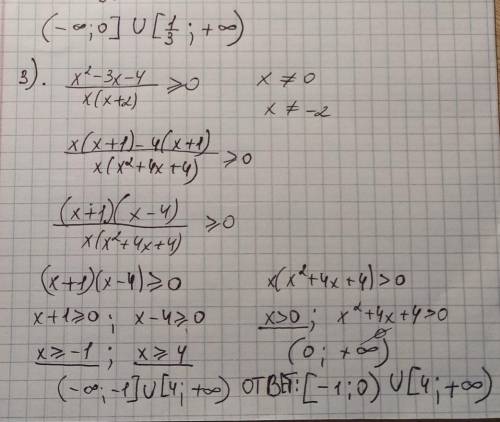 (-∞;0] ∪ [1/3; +∞)
3). (x²-3x-4)/(x(x+2)) ≥0 x ≠ 0
x ≠ -2
(x(x+1)-4(x+1))/(x(x²+4x+4)) ≥0
((x+1)(x-4))/(x(x²+4x+4)) ≥0
(x+1)(x-4)≥0 x(x²+4x+4)>0
x+1≥0 ; x-4≥0 x>0 ; x²+4x+4>0
x≥-1 ; x≥4 (0; +∞)
(-∞;-1]∪[4;+∞) ОТВЕТ: [-1;0) ∪ [4; +∞)